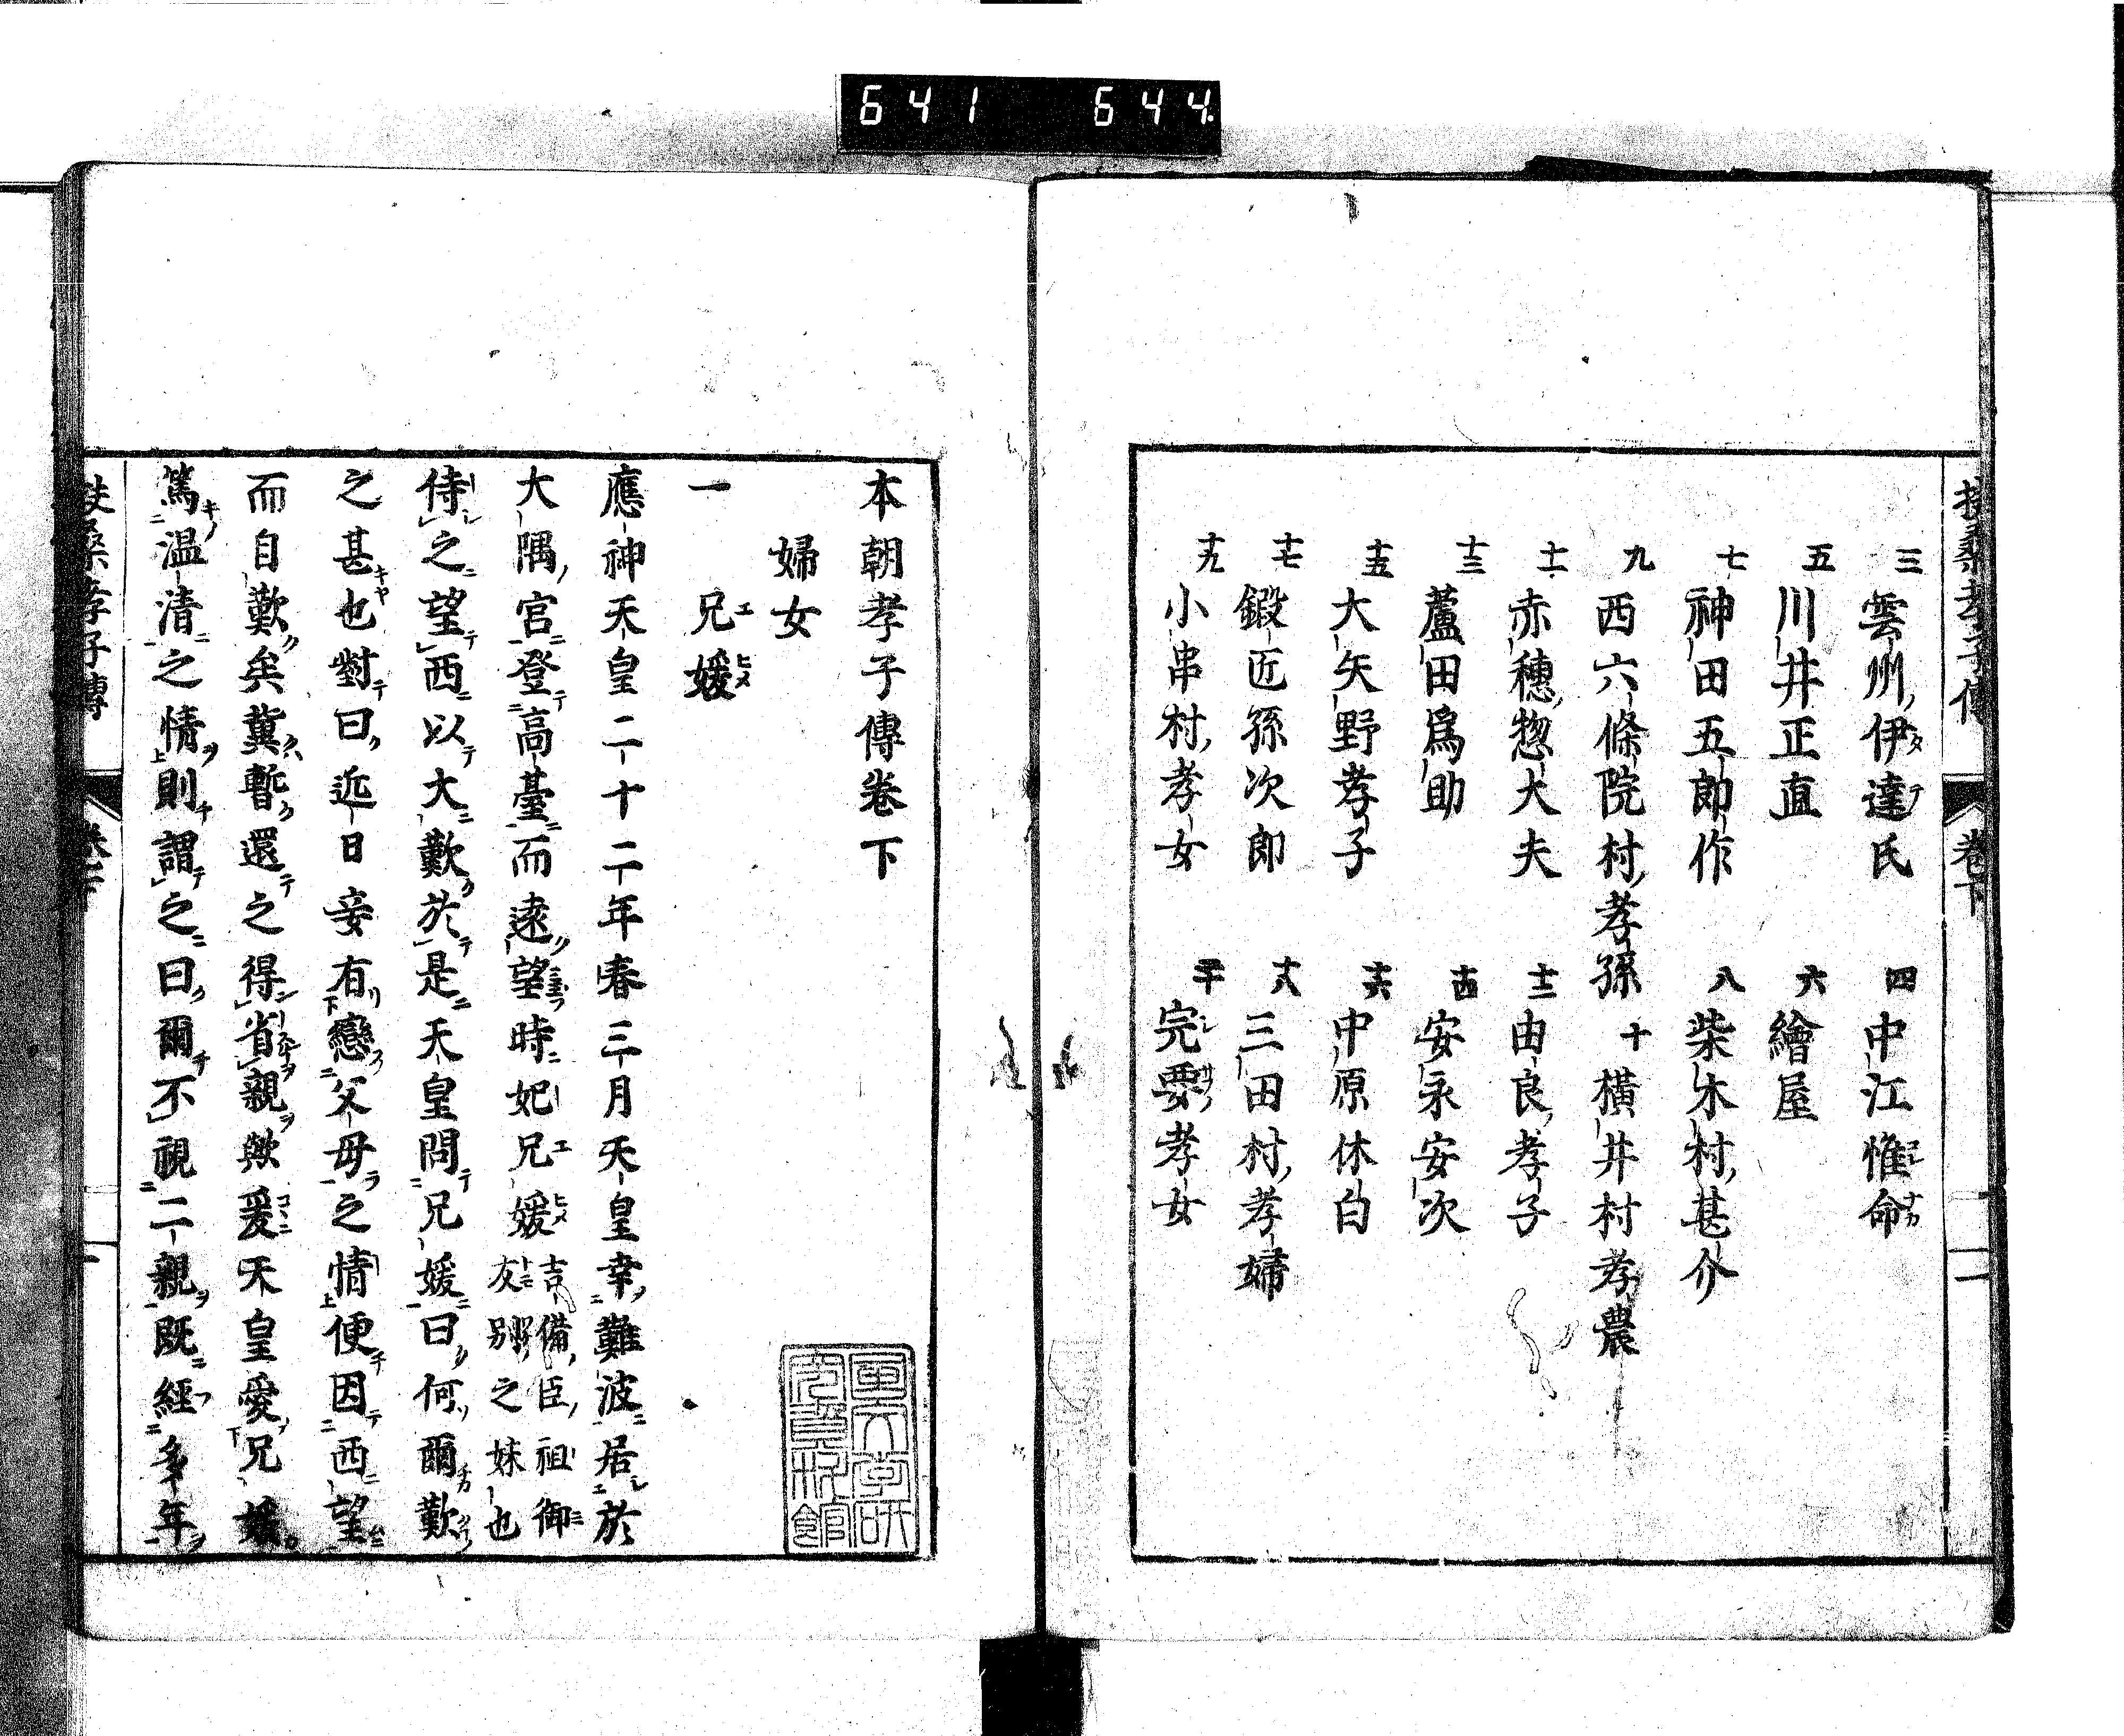 641 644
扶桑孝子傳 卷下
三 雲州伊達氏 四 中江惟命
五 川井正直 六 繪屋
七 神田五郎作 八 柴木村甚介
九 西六條院村孝孫 十 橫井村孝農
十一 赤穗惣大夫 十二 由良孝子
十三 蘆田爲助 十四 安永安次
十五 大矢野孝子 十六 中原休白
十七 鍛匠孫次郎 十八 三田村孝婦
十九 小串村孝女 二十 宍要孝女
本朝孝子傳卷下
婦女
一 兄媛
應神天皇二十二年春三月天皇幸難波居於
大隅宮登高臺而遠望時妃兄媛吉備臣祖御友別之妹也
侍之望西以大歎於是天皇問兄媛曰何爾歎
之甚也對曰近日妾有戀父母之情便因西望
而自歎矣冀暫還之得省親歟爰天皇愛兄媛
篤溫凊之情則謂之曰爾不視二親既經多年
扶桑孝子傳 卷下 一